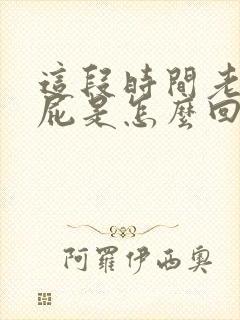 這段時間老
屁是怎麼回
阿羅伊西奧